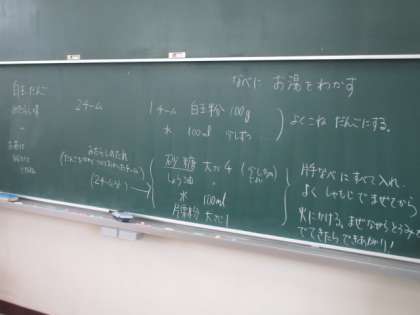 なべに お湯をわかす
白玉だんご
2チーム
1チーム 白玉粉 100g
水 100ml 少しずつ
よくこね だんごにする。
みたらしのたれ
(2チーム分)
砂糖 大さじ4
しょう油 〃
水 100ml
片栗粉 大さじ1
片手なべにすべて入れ、
よく しゃもじでまぜてから
火にかける。まぜながらとろみが
でてきたらできあがり!